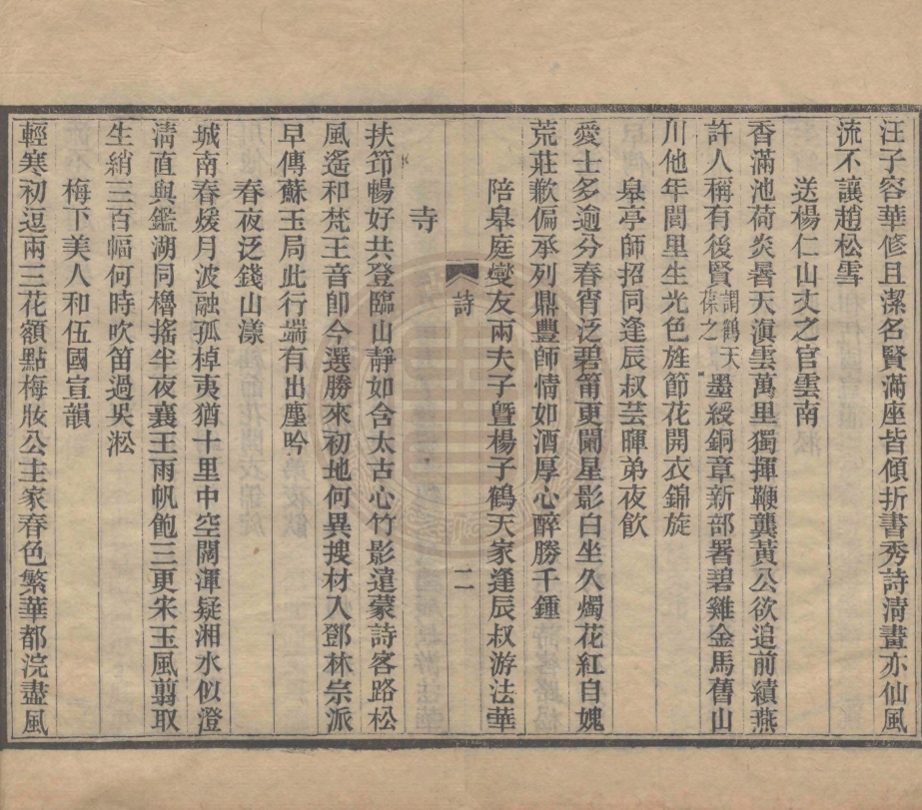 汪子容華修且潔名賢滿座皆傾折書秀詩淸畫亦仙風
流不讓趙松雪
送楊仁山丈之官雲南
香滿池荷炎暑天滇雲萬里獨揮鞭龔黃公欲追前績燕
許人稱有後賢謂鶴天葆之墨綬銅章新部署碧雞金馬舊山
川他年閭里生光色旌節花開衣錦旋
皋亭師招同逢辰叔芸暉弟夜飮
愛士多逾分春宵泛碧筩更闌星影白坐久燭花紅自媿
荒莊歉偏承列鼎豐師情如酒厚心醉勝千鍾
陪皋庭燮友兩夫子曁楊子鶴天家逢辰叔游法華
詩
二
寺
扶笻暢好共登臨山靜如含太古心竹影遠蒙詩客路松
風遙和梵王音卽今選勝來初地何異搜材入鄧林宗派
早傳蘇玉局此行端有出塵吟
春夜泛錢山漾
城南春煖月波融孤棹夷猶十里中空闊渾疑湘水似澄
淸直與鑑湖同櫓搖半夜襄王雨帆飽三更宋玉風翦取
生綃三百幅何時吹笛過吳淞
梅下美人和伍國宣韻
輕寒初逗兩三花額點梅妝公主家春色繁華都浣盡風